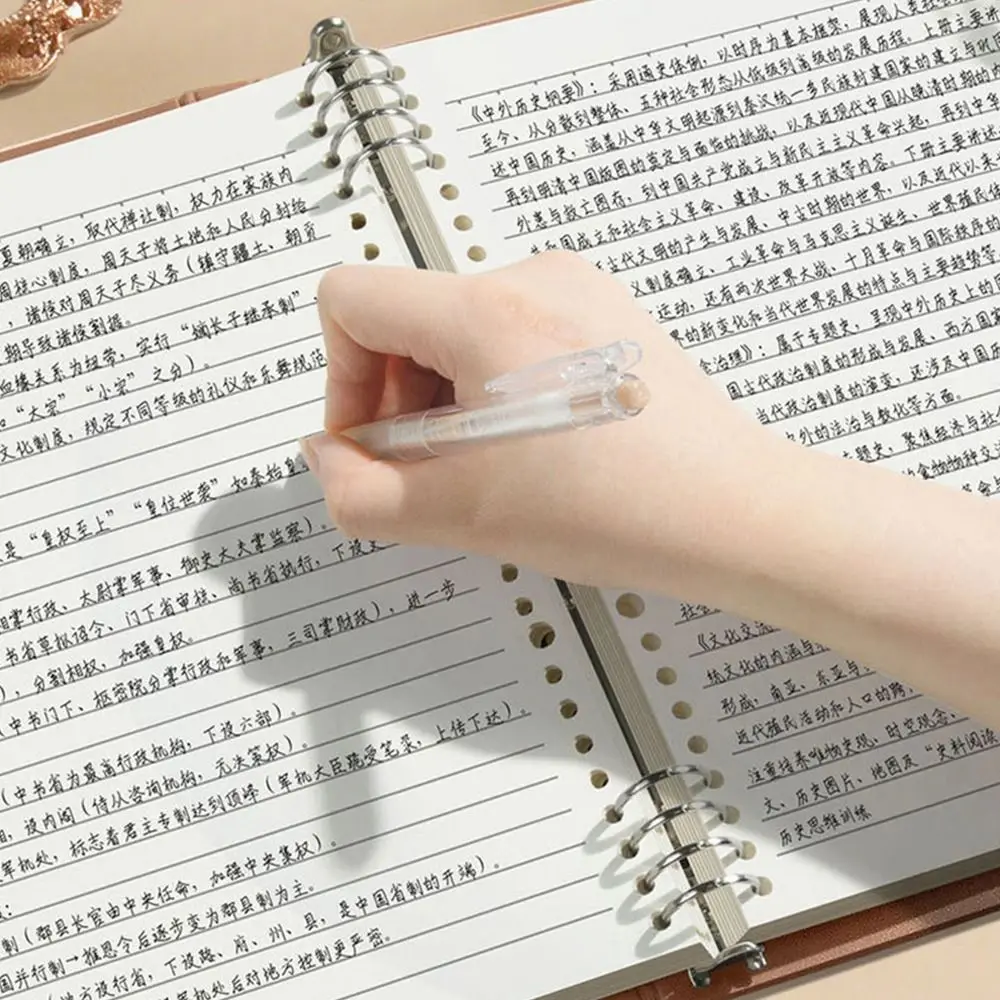 夏朝确立，取代禅让制，权力在家族内
周核心制度，周天子将土地和人民分封给
，诸侯对周天子尽义务（镇守疆土、朝贡
期导致诸侯割据。
血缘关系为纽带，实行“嫡长子继承制”，
和“大宗”“小宗”之分）。
文化制度，规定不同等级的礼仪和乐舞规范
是“皇权至上”“皇位世袭”如秦始皇
相掌行政、太尉掌军事、御史大夫掌监察）。
书省草拟诏令、门下省审核、尚书省执行，下设
），分割相权，加强皇权。
（中书门下、枢密院分掌行政和军事，三司掌财政），进一步
（中书省为最高行政机构，下设六部）。
相，设内阁（侍从咨询机构，无决策权）。
军机处，标志着君主专制达到顶峰（军机大臣跪受笔录，上传下达）。
：
制（郡县长官由中央任命，加强中央集权）。
国并行制→推恩令后逐步变为郡县制为主。
（地方设行省，下设路、府、州、县，是中国省制的开端）。
军机处后对地方控制更严密。
《中外历史纲要》：采用通史体例，以时序为基本框架，展现人类社会
至今、从分散到整体、五种社会形态从低级到高级的发展历程，上册主要讲
述中国历史，涵盖从中华文明起源到秦汉统一多民族封建国家的建立与巩固
再到明清中国版图的奠定与面临的挑战，以及近现代中国从晚清时期的
外患与救亡图存，到中国共产党成立与新民主主义革命兴起，再到中华
共和国成立和社会主义革命、建设、改革开放等内容。下册主要讲述
古代文明的产生与发展、中古时期的世界，以及近代以来
制度确立、工业革命与马克思主义诞生、世界殖民体
运动，还有两次世界大战、十月革命与国际秩序的
界的新变化和当代世界发展的特点与主要趋势等
治理》：属于专题史，呈现中外历史上的
国古代政治制度的形成与发展、西方国家
政治制度的演变，还涉及中国历
当代中外的法治与教化等方面。
专题史，聚焦经济与社
食物物种交
《文化交流
统文化的内涵与
形成，南亚、东亚与
近代殖民活动和人口的跨
注重培养唯物史观、时空观念、
文、历史图片、地图及“史料阅读
历史思维训练